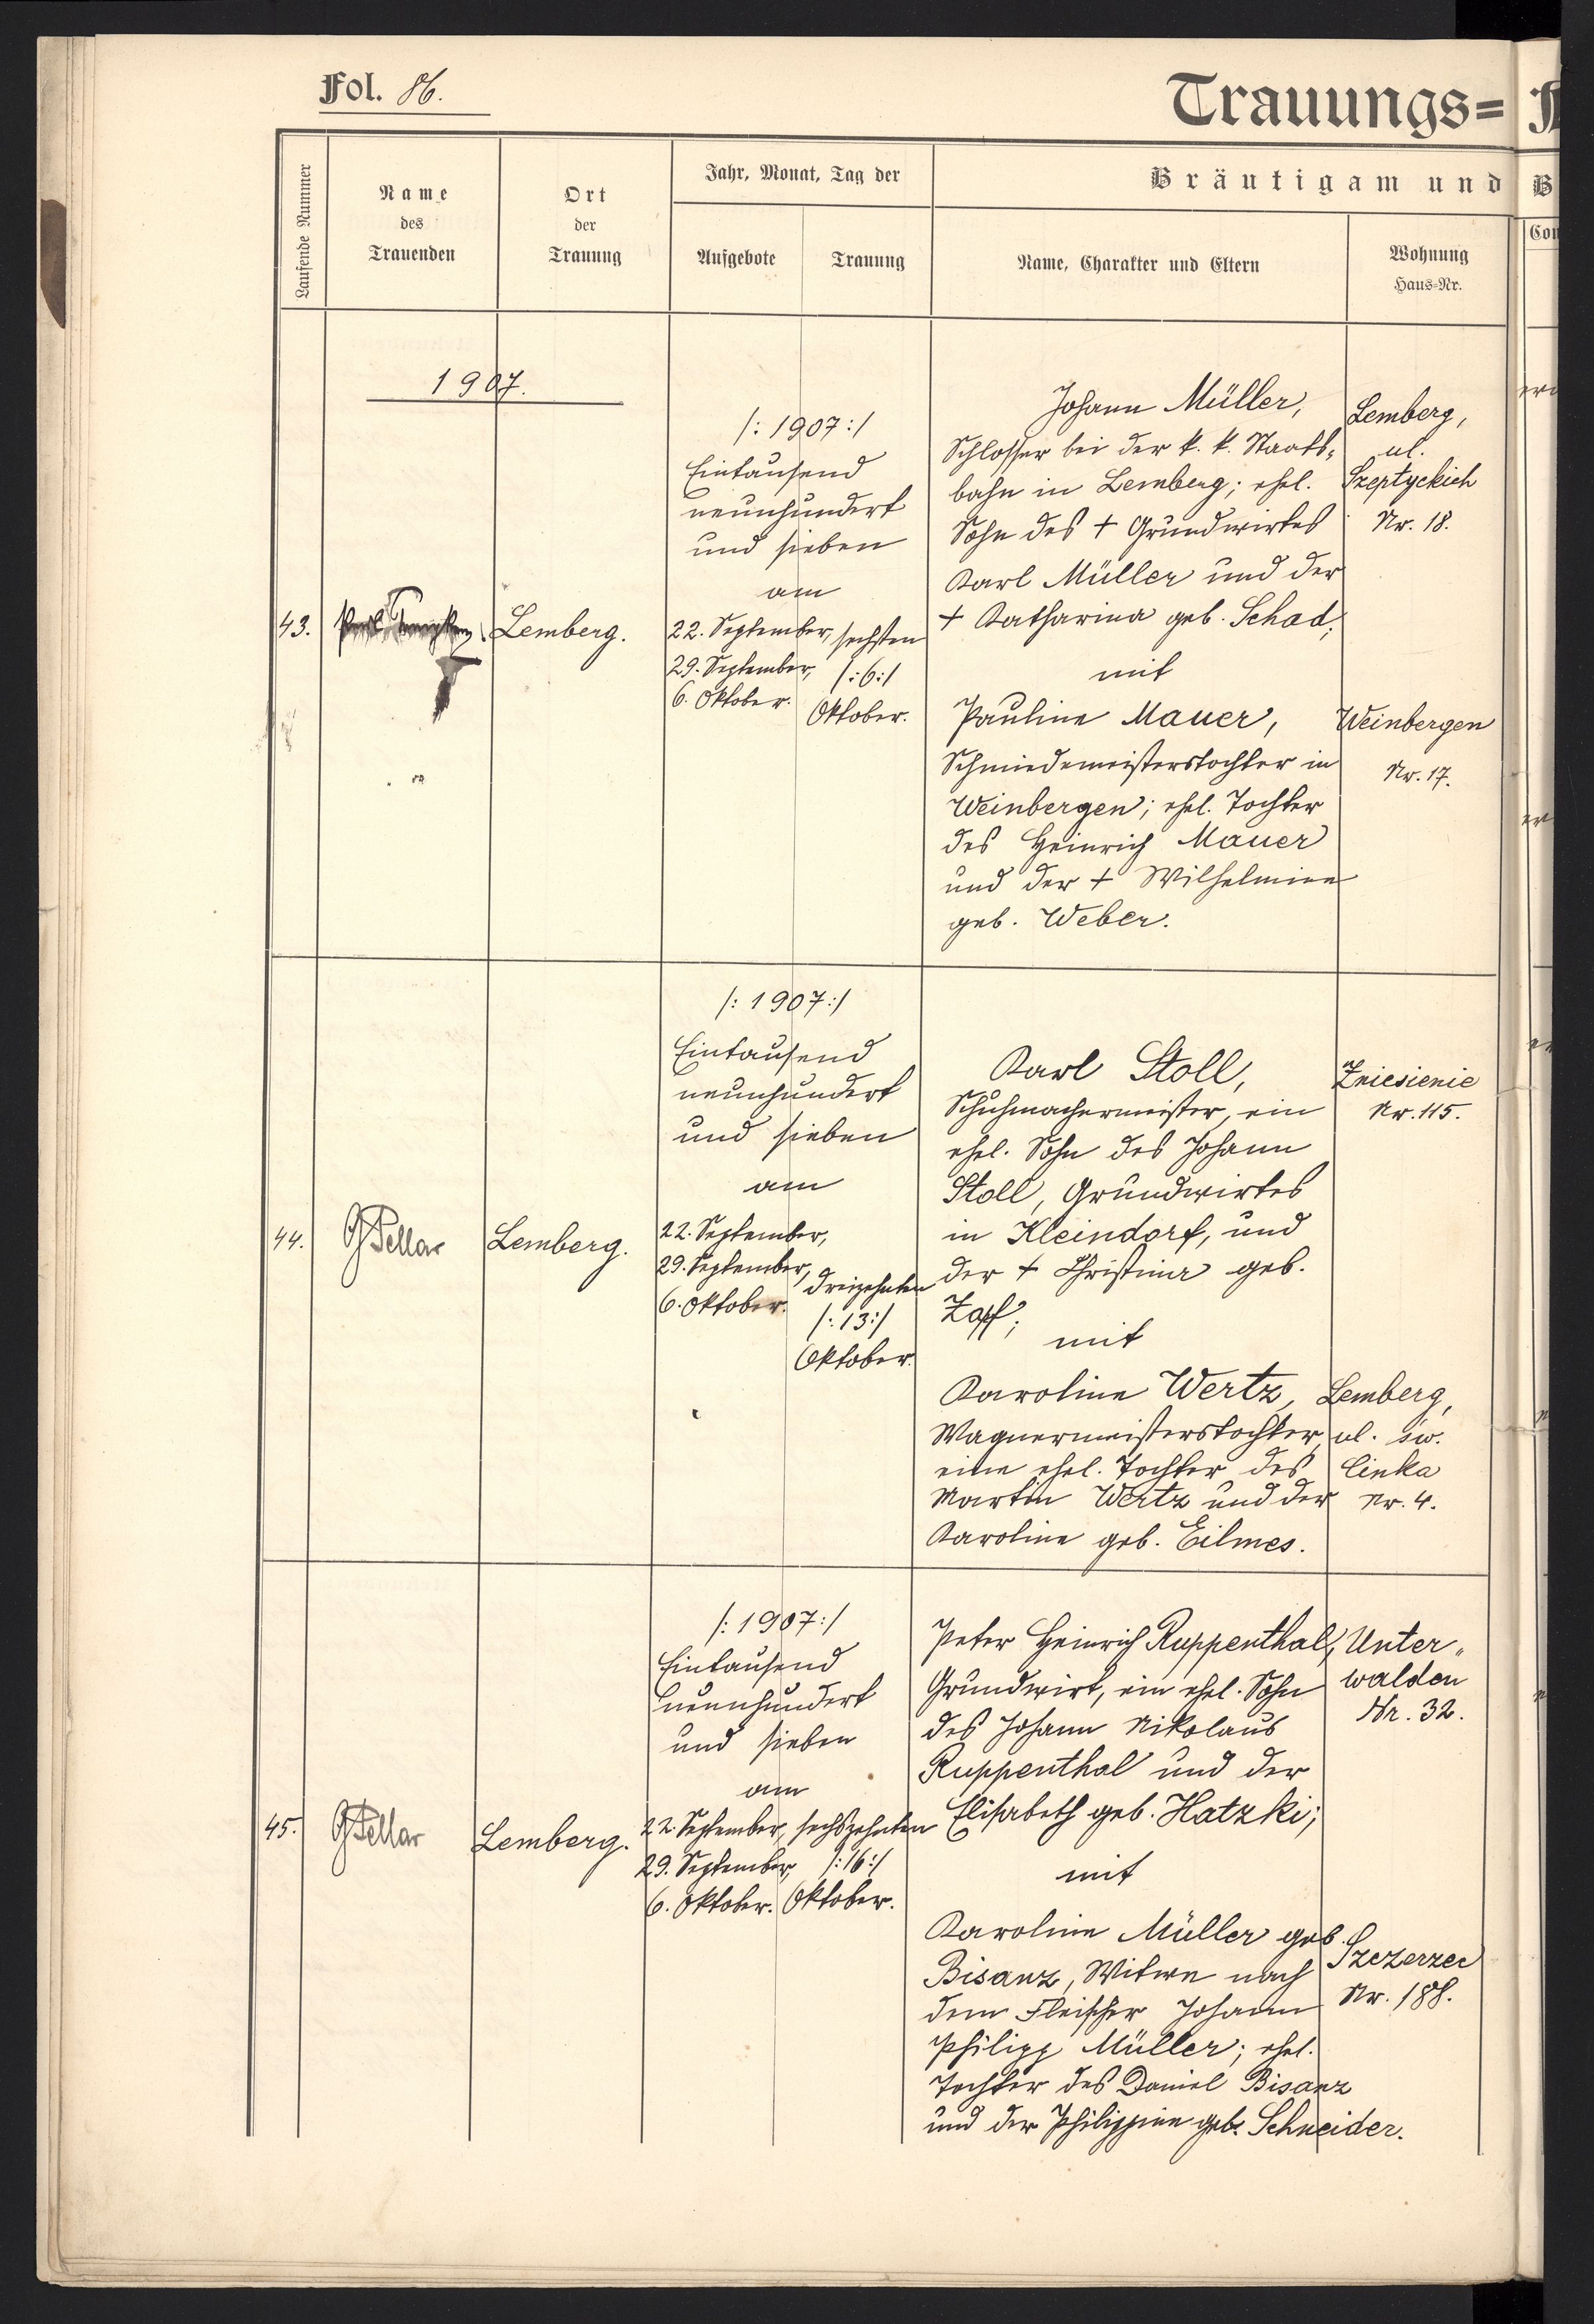 Fol. 86.
Trauungs=
Laufende Nummer
Name
des
Trauenden
Ort
der
Trauung
Jahr, Monat, Tag der
Aufgebote
Trauung
Bräutigam und B
Name, Charakter und Eltern
Wohnung
Haus-Nr.
1907.
43.
Lemberg.
/: 1907 :/
Eintausend
neunhundert
und sieben
am
22. September,
29. September,
6. Oktober.
sechsten
/: 6 :/
Oktober.
Johann Müller,
Schlosser bei der k. k. Staats-
bahn in Lemberg; ehel.
Sohn des + Grundwirtes
Karl Müller und der
+ Katharina geb. Schad;
mit
Pauline Mauer,
Schmiedemeisterstochter in
Weinbergen; ehel. Tochter
des Heinrich Mauer
und der + Wilhelmine
geb. Weber.
Lemberg,
ul.
Szeptyckich
Nr. 18.
Weinbergen
Nr. 17.
44.
GPellar
Lemberg.
/: 1907 :/
Eintausend
neunhundert
und sieben
am
22. September,
29. September,
6. Oktober.
dreizehnten
/: 13 :/
Oktober.
Karl Stoll,
Schuhmachermeister, ein
ehel. Sohn des Johann
Stoll, Grundwirtes
in Kleindorf, und
der + Christina geb.
Zapf;
mit
Karoline Wertz,
Wagnermeisterstochter,
eine ehel. Tochter des
Martin Wertz und der
Karoline geb. Eilmes.
Zniesienie
Nr. 115.
Lemberg,
ul. św.
Cinka
Nr. 4.
45.
GPellar
Lemberg.
/: 1907 :/
Eintausend
neunhundert
und sieben
am
22. September,
29. September,
6. Oktober.
sechszehnten
/: 16 :/
Oktober.
Peter Heinrich Ruppenthal,
Grundwirt, ein ehel. Sohn
des Johann Nikolaus
Ruppenthal und der
Elisabeth geb. Hatzki;
mit
Karoline Müller geb.
Bisanz, Witwe nach
dem Fleischer Johann
Philipp Müller; ehel.
Tochter des Daniel Bisanz
und der Philippine geb. Schneider.
Unter-
walden
Nr. 32.
Szczerzec
Nr. 188.